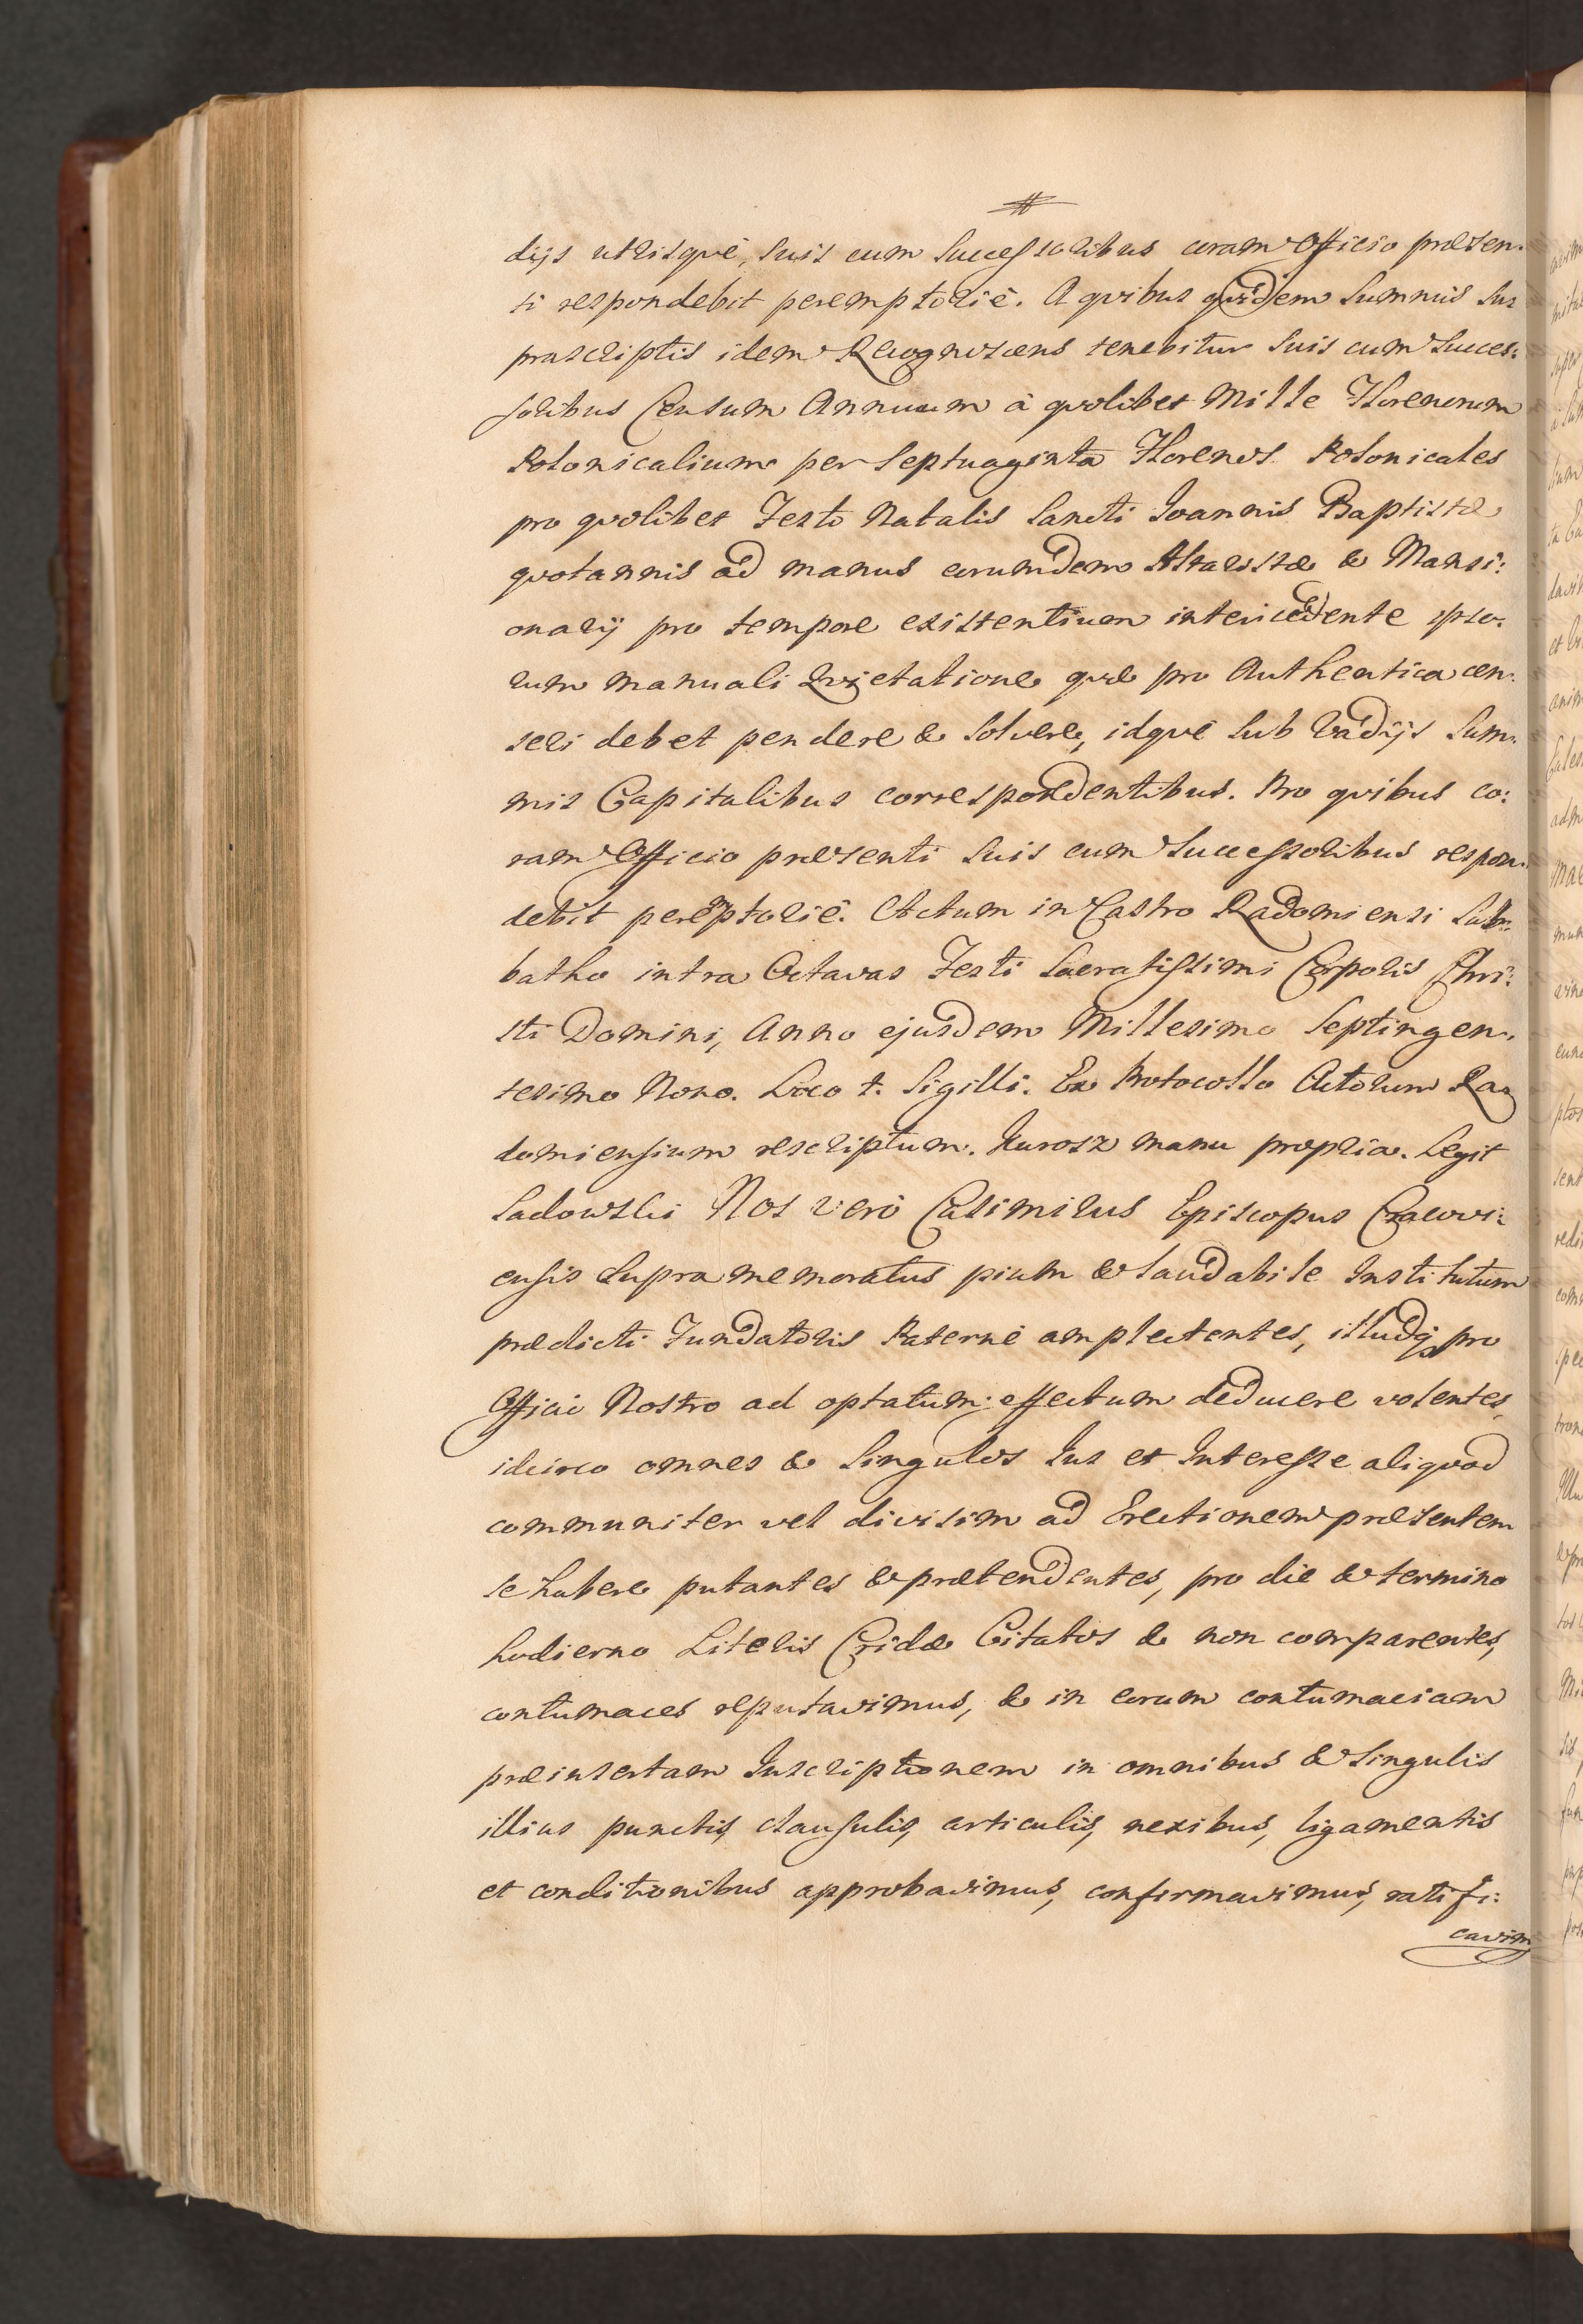 #
dijs utrisque, suis cum Successoribus coram Officio præsen:
ti respondebit peremptoriè. A quibus quidem Summis su=
prascriptis idem Recognoscens tenebitur suis cum Succes:
soribus Censum Annuum à quolibet Mille Florenorum
Polonicalium per Septuaginta Florenos Polonicales
pro quolibet Festo Natalis Sancti Joannis Baptistæ
quotannis ad manus eorundem Altaristæ & Mansi:
onarij pro tempore existentium intericedente ipso:
rum manuali Quietatione, quæ pro Authentica cen:
seri debet pendere & solvere, idque sub Vadijs Sum:
mis Capitalibus correspondentibus. Pro quibus co:
ram Officio præsenti suis cum Successoribus respon:
debit peremptoriè. Actum in Castro Radomiensi Sab:
batho intra Octavas Festi Sacratissimi Corporis Chri:
sti Domini, Anno ejusdem Millesimo Septingen:
tesimo Nono. Loco †. Sigilli. Ex Protocollo Actorum Ra=
domiensium rescriptum. Kurosz manu propria. Legit
Sadowski Nos verò Casimirus Episcopus Cracovi:
ensis supra memoratus pium & laudabile Institutum
prædicti Fundatoris Paternè amplectentes, illudq; pro
Officio Nostro ad optatum effectum deducere volentes,
idcirco omnes & singulos Jus et Interesse aliquod
communiter vel divisim ad Erectionem præsentem
se habere putantes & prætendentes, pro die & termino
hodierno Literis Cridæ Citatos & non comparentes,
contumaces reputavimus, & in eorum contumaciam
præinsertam Inscriptionem in omnibus & singulis
illius punctis, clausulis, articulis, nexibus, ligamentis
et conditionibus approbavimus, confirmavimus, ratifi:
cavim